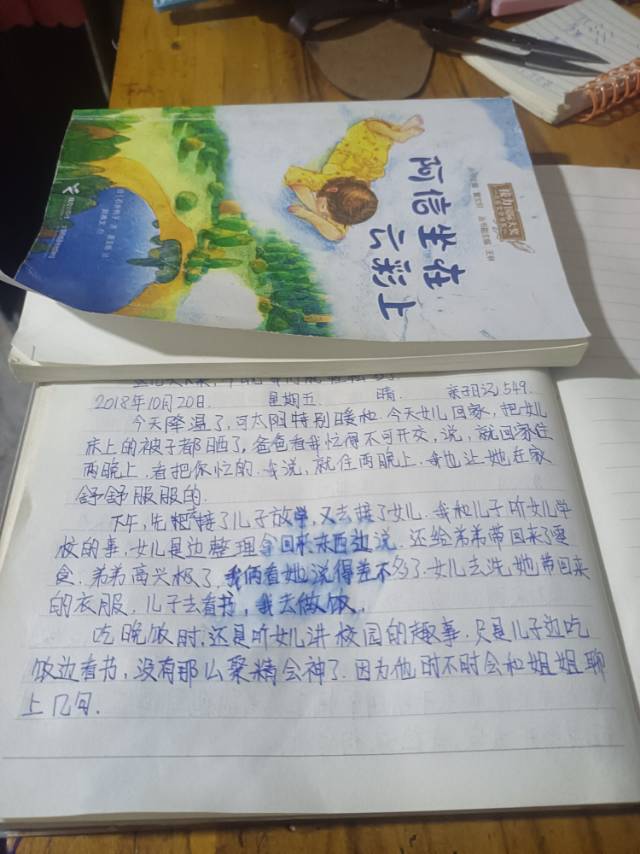 阿信坐在
云彩上
接力国际大奖
2018年10月20日. 星期五 晴. 亲子日记549.
今天降温了,可太阳特别暖和.今天女儿回家,把女儿
床上的被子都晒了,爸爸看我忙得不可开交,说,就回家住
两晚上,看把你忙的.我说,就住两晚上.我也让她在家
舒舒服服的.
下午,先把接了儿子放学,又去接了女儿.我和儿子听女儿学
校的事.女儿是边整理拿回来东西边说.还给弟弟带回来了零
食.弟弟高兴极了.我俩看她说得差不多了.女儿去洗她带回来
的衣服,儿子去看书,我去做饭.
吃晚饭时,还是听女儿讲校园的趣事.只是儿子边吃
饭边看书,没有那么聚精会神了.因为他时不时会和姐姐聊
上几句.